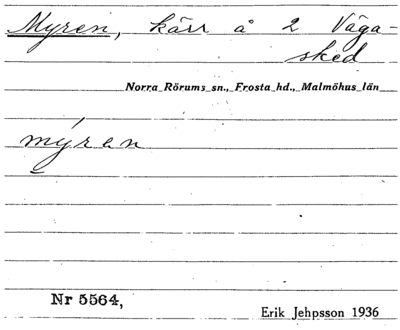 Myren, kärr å 2 Våga-
sked
Norra Rörums sn., Frosta hd., Malmöhus län
mýren
Nr 5564,
Erik Jehpsson 1936